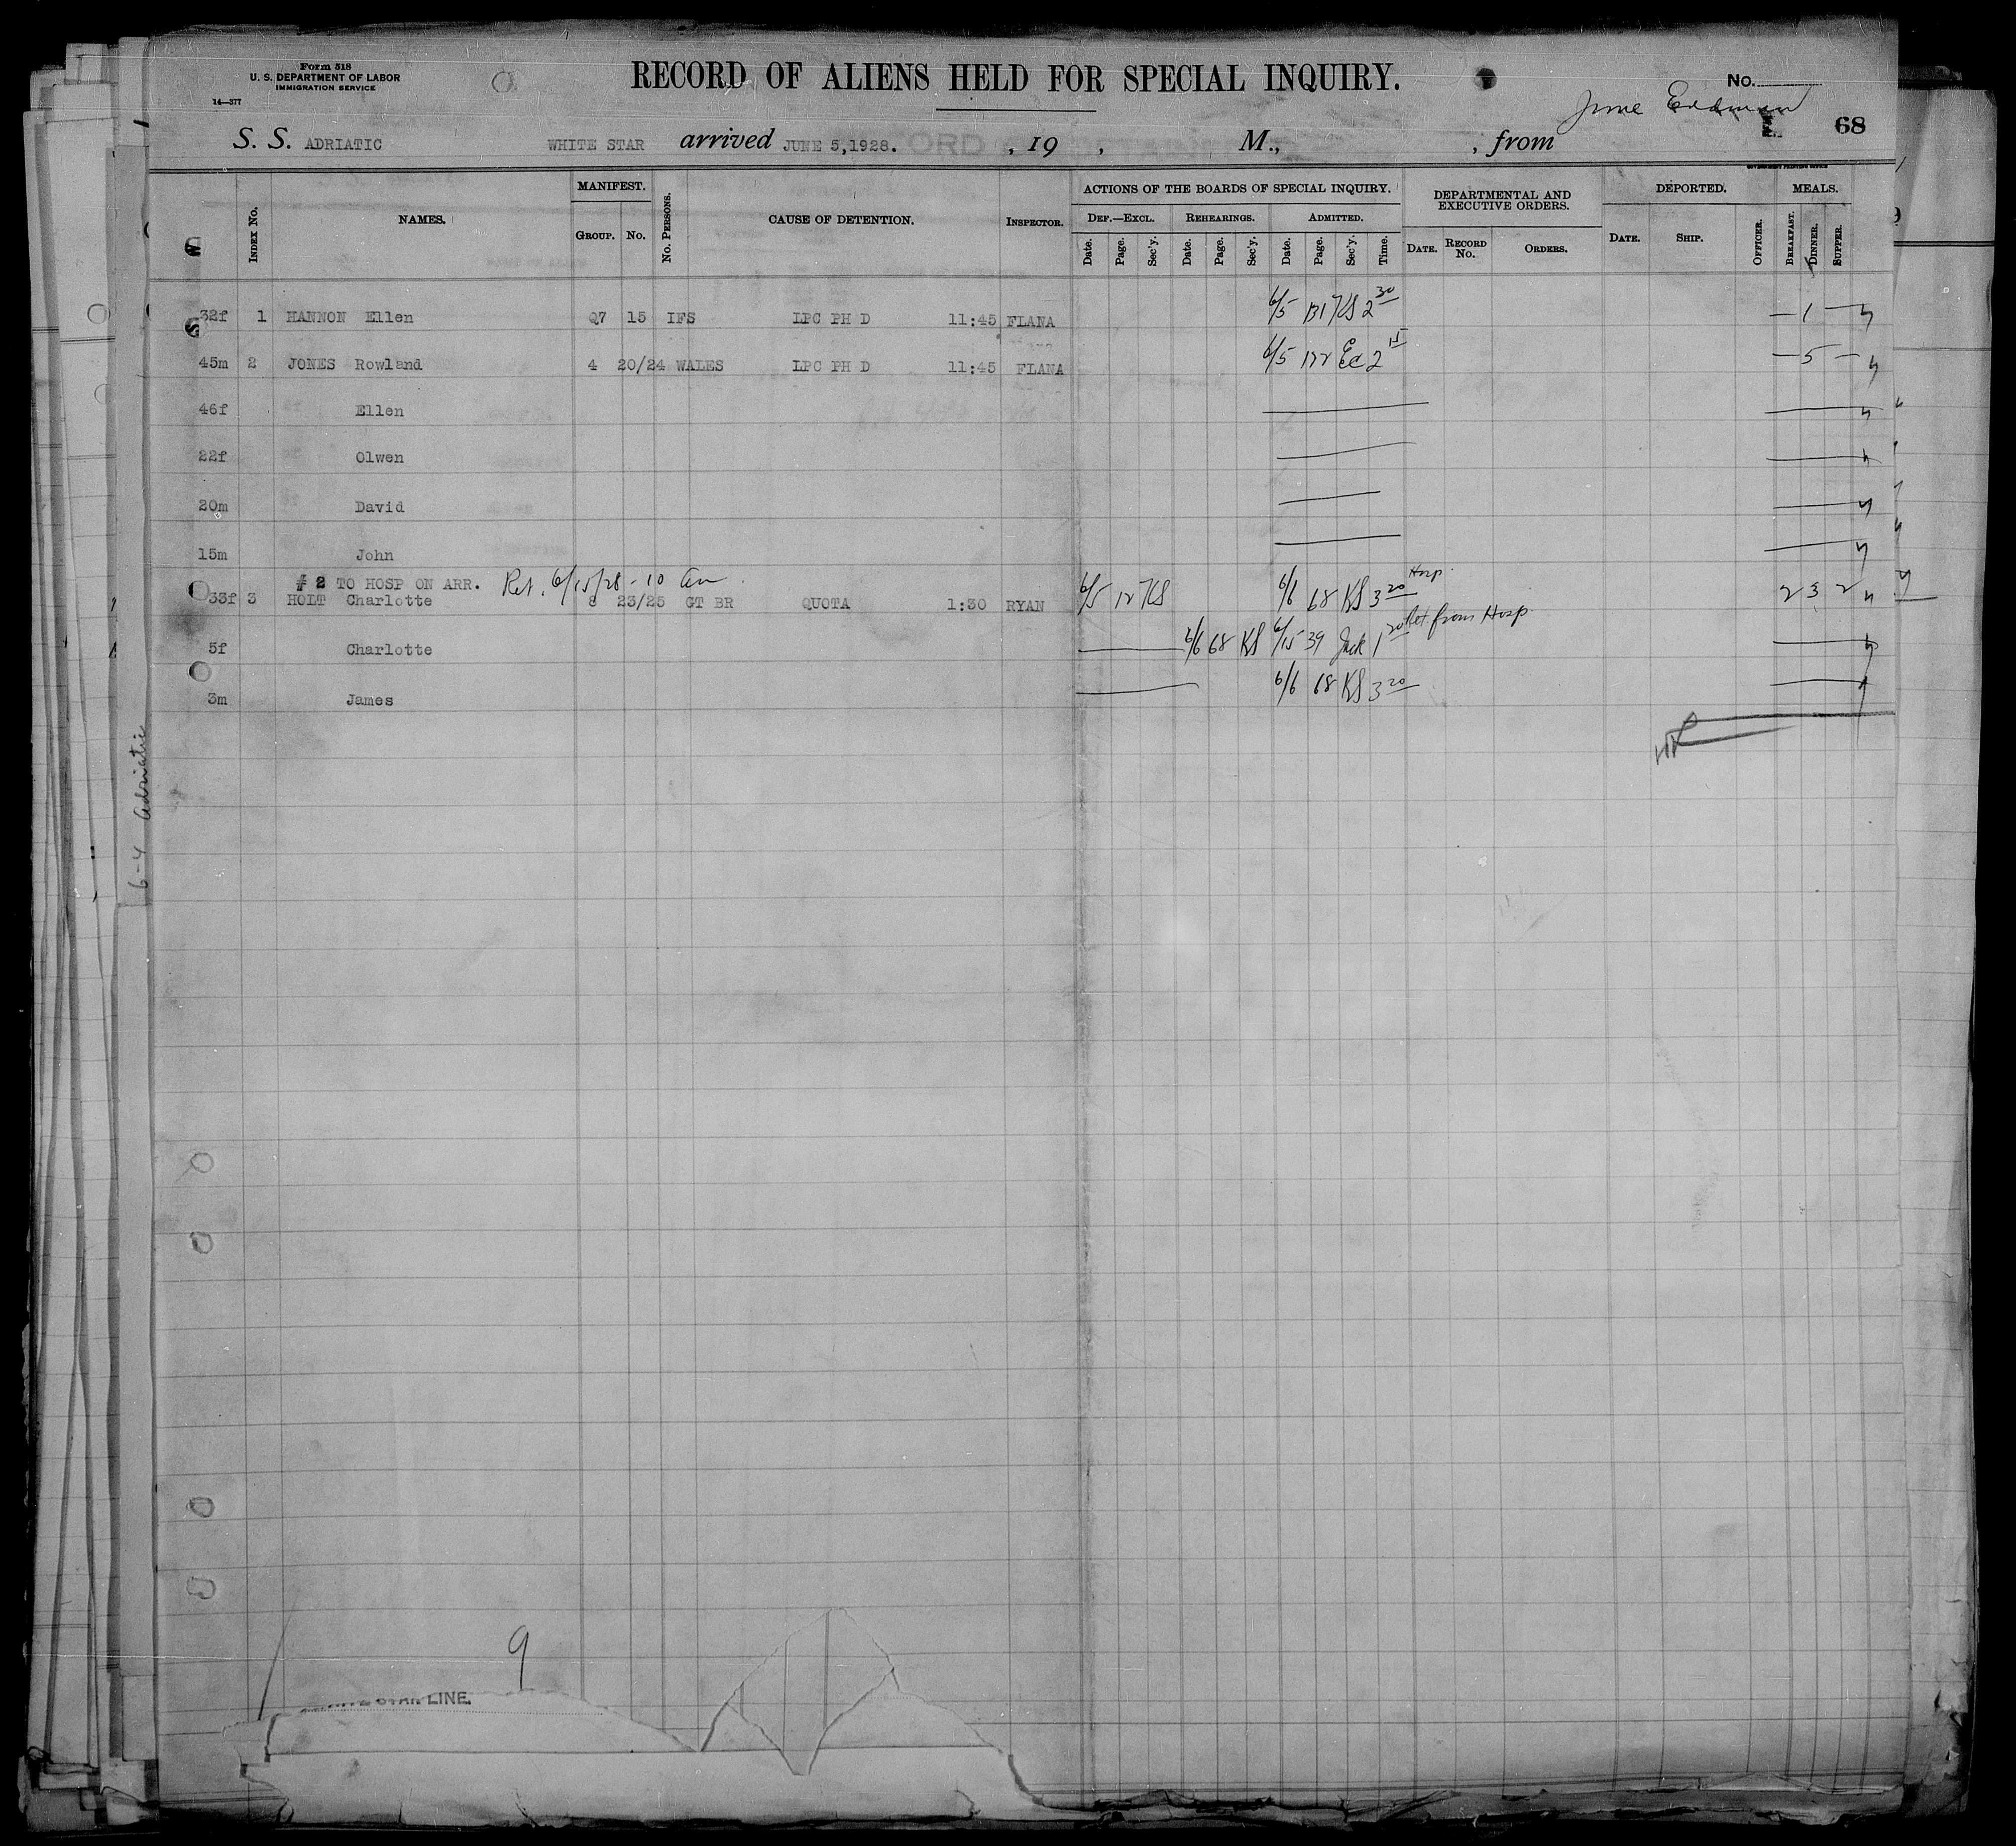 Form 518
U. S. DEPARTMENT OF LABOR
IMMIGRATION SERVICE
14—377
RECORD OF ALIENS HELD FOR SPECIAL INQUIRY.
No.
68
S. S. ADRIATIC WHITE STAR arrived JUNE 5,1928. , 19 , M., , from
GOVERNMENT PRINTING OFFICE
INDEX NO. NAMES. MANIFEST. GROUP. NO. NO. PERSONS. CAUSE OF DETENTION. INSPECTOR. ACTIONS OF THE BOARDS OF SPECIAL INQUIRY. DEF.—EXCL. Date. Page. Sec'y. REHEARINGS. Date. Page. Sec'y. ADMITTED. Date. Page. Sec'y. Time. DEPARTMENTAL AND EXECUTIVE ORDERS. DATE. RECORD NO. ORDERS. DEPORTED. DATE. SHIP. OFFICER. MEALS. BREAKFAST. DINNER. SUPPER.
32f 1 HANNON Ellen Q7 15 IFS LPC PH D 11:45 FLANA 6/5 131 KS 2 30 — 1 —
45m 2 JONES Rowland 4 20/24 WALES LPC PH D 11:45 FLANA 6/5 122 Ed 2 15 — 5 —
46f Ellen
22f Olwen
20m David
15m John
# 2 TO HOSP ON ARR. Ret. 6/15/28 - 10 am Hosp.
33f 3 HOLT Charlotte 8 23/25 GT BR QUOTA 1:30 RYAN 6/5 12 KS 6/6 68 KS 3 20 2 3 2
5f Charlotte 6/6 68 KS 6/15 39 Jack 1 20 Ret from Hosp
3m James 6/6 68 KS 3 20
6-4 Adriatic
9
STAR LINE.